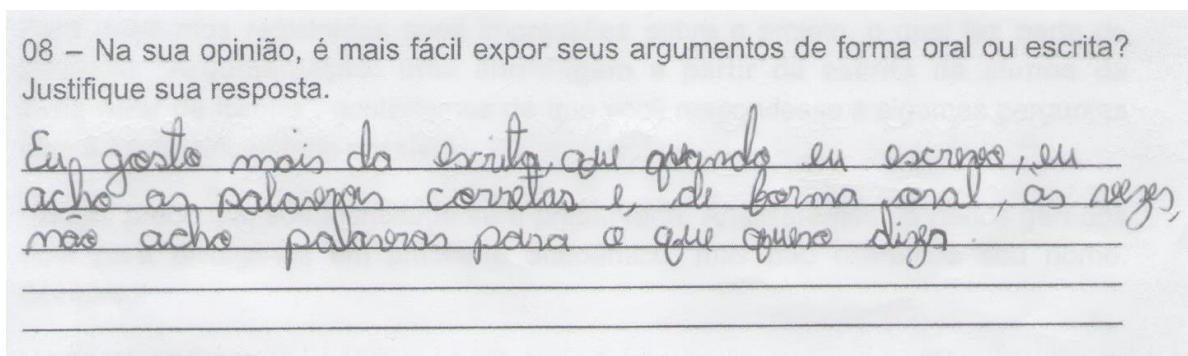 08 – Na sua opinião, é mais fácil expor seus argumentos de forma oral ou escrita?
Justifique sua resposta.
Eu gosto mais da escrita, que quando eu escrevo, eu
acho as palavras corretas e, de forma oral, às vezes,
não acho palavras para o que quero dizer.